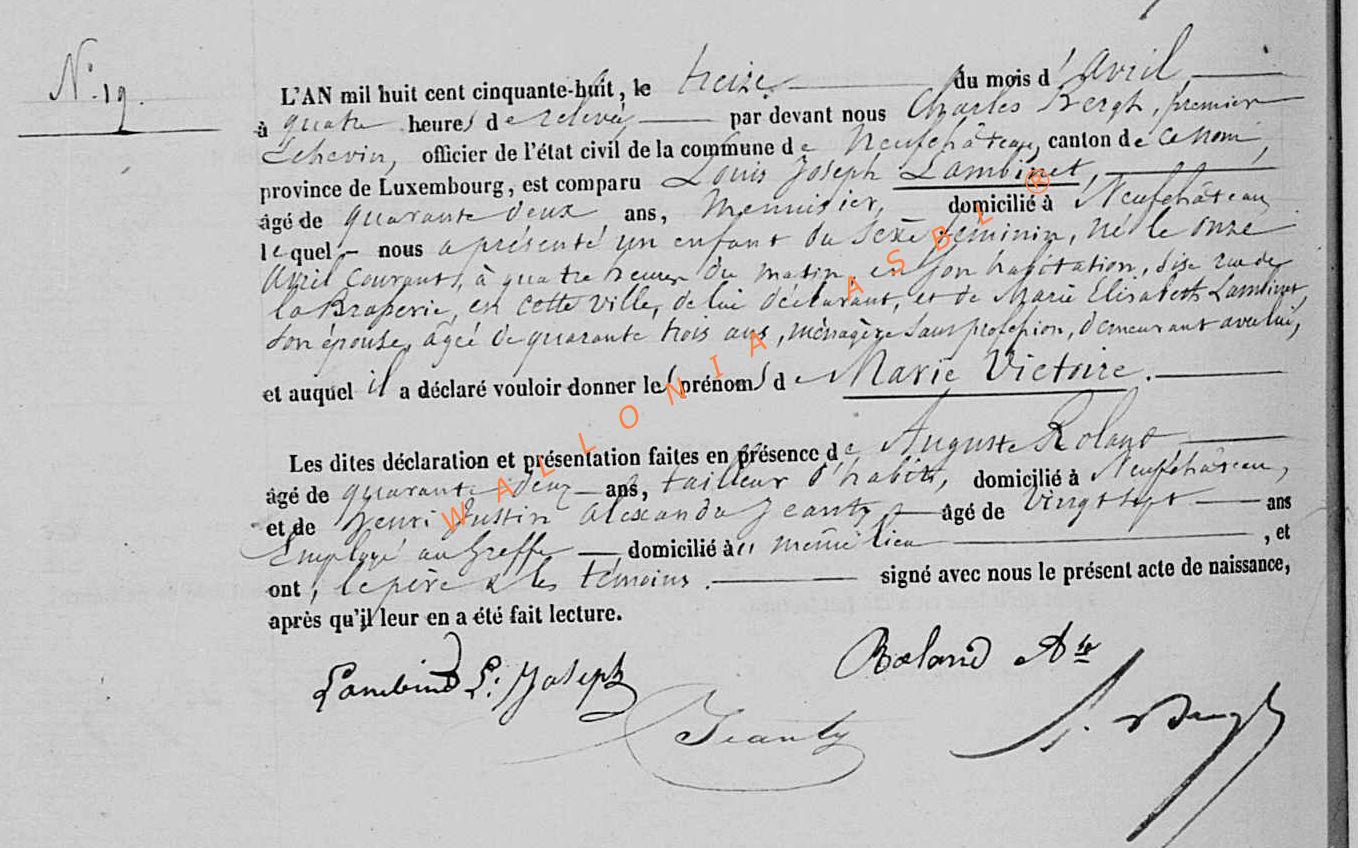 N.° 19.
L'AN mil huit cent cinquante-huit, le treize du mois d'avril,
à quatre heures de relevée, par devant nous Charles Bergh, premier
Echevin, officier de l'état civil de la commune de Neufchâteau, canton de ce nom,
province de Luxembourg, est comparu Louis Joseph Lambinet,
âgé de quarante deux ans, Menuisier, domicilié à Neufchâteau,
lequel nous a présenté un enfant du sexe féminin, né le onze
avril courant, à quatre heures du matin, en son habitation, sise rue de
la Draperie, en cette ville, de lui déclarant, et de Marie Elisabeth Lambinet,
son épouse, âgée de quarante trois ans, ménagère sans profession, demeurant avec lui,
et auquel il a déclaré vouloir donner les prénoms de Marie Victoire.
Les dites déclaration et présentation faites en présence de Auguste Roland
âgé de quarante deux ans, tailleur d'habits, domicilié à Neufchâteau,
et de Henri Justin Alexandre Jeanty, âgé de vingt sept ans
Employé au Greffe domicilié au même lieu, et
ont, le père & les témoins. signé avec nous le présent acte de naissance,
après qu'il leur en a été fait lecture.
Lambinet L. Joseph
Roland Ate
Jeanty
Bergh
WALLONIA ASBL ®